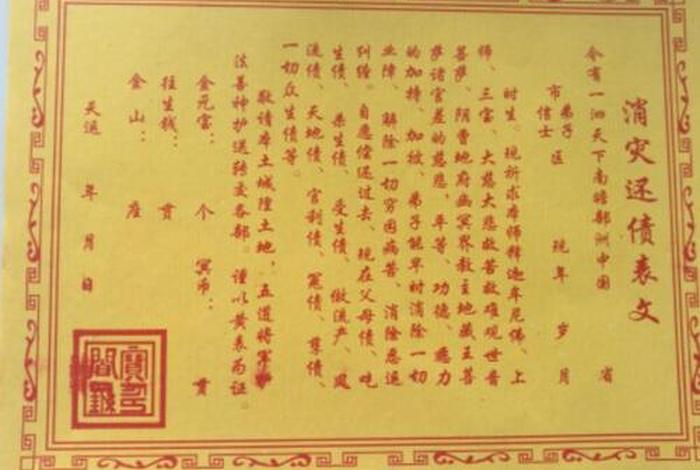 消灾还债表文
今有一泗天下南瞻部洲中国 省
市 区 现年 岁 月
弟子
信士
时生。现祈求本师释迦牟尼佛、上
师、三宝、大慈大悲救苦救难观世音
菩萨、阴曹地府幽冥界教主地藏王菩
萨诸官差的慈悲、平等、功德、愿力
的加持、加被、弟子能早时消除一切
业障、解除一切穷困病苦、消除恶运
纠缠。自愿偿还过去、现在父母债、吃
生债、杀生债、受生债、做流产、堕
流债、天地债、官利债、冤债、孽债、
一切众生债等。
敬请本土城隍土地、五道将军
法善神护送转交各部。谨以黄表为证
金元宝: 个 冥币: 贯
往生钱: 贯
金山: 座
天运 年 月 日